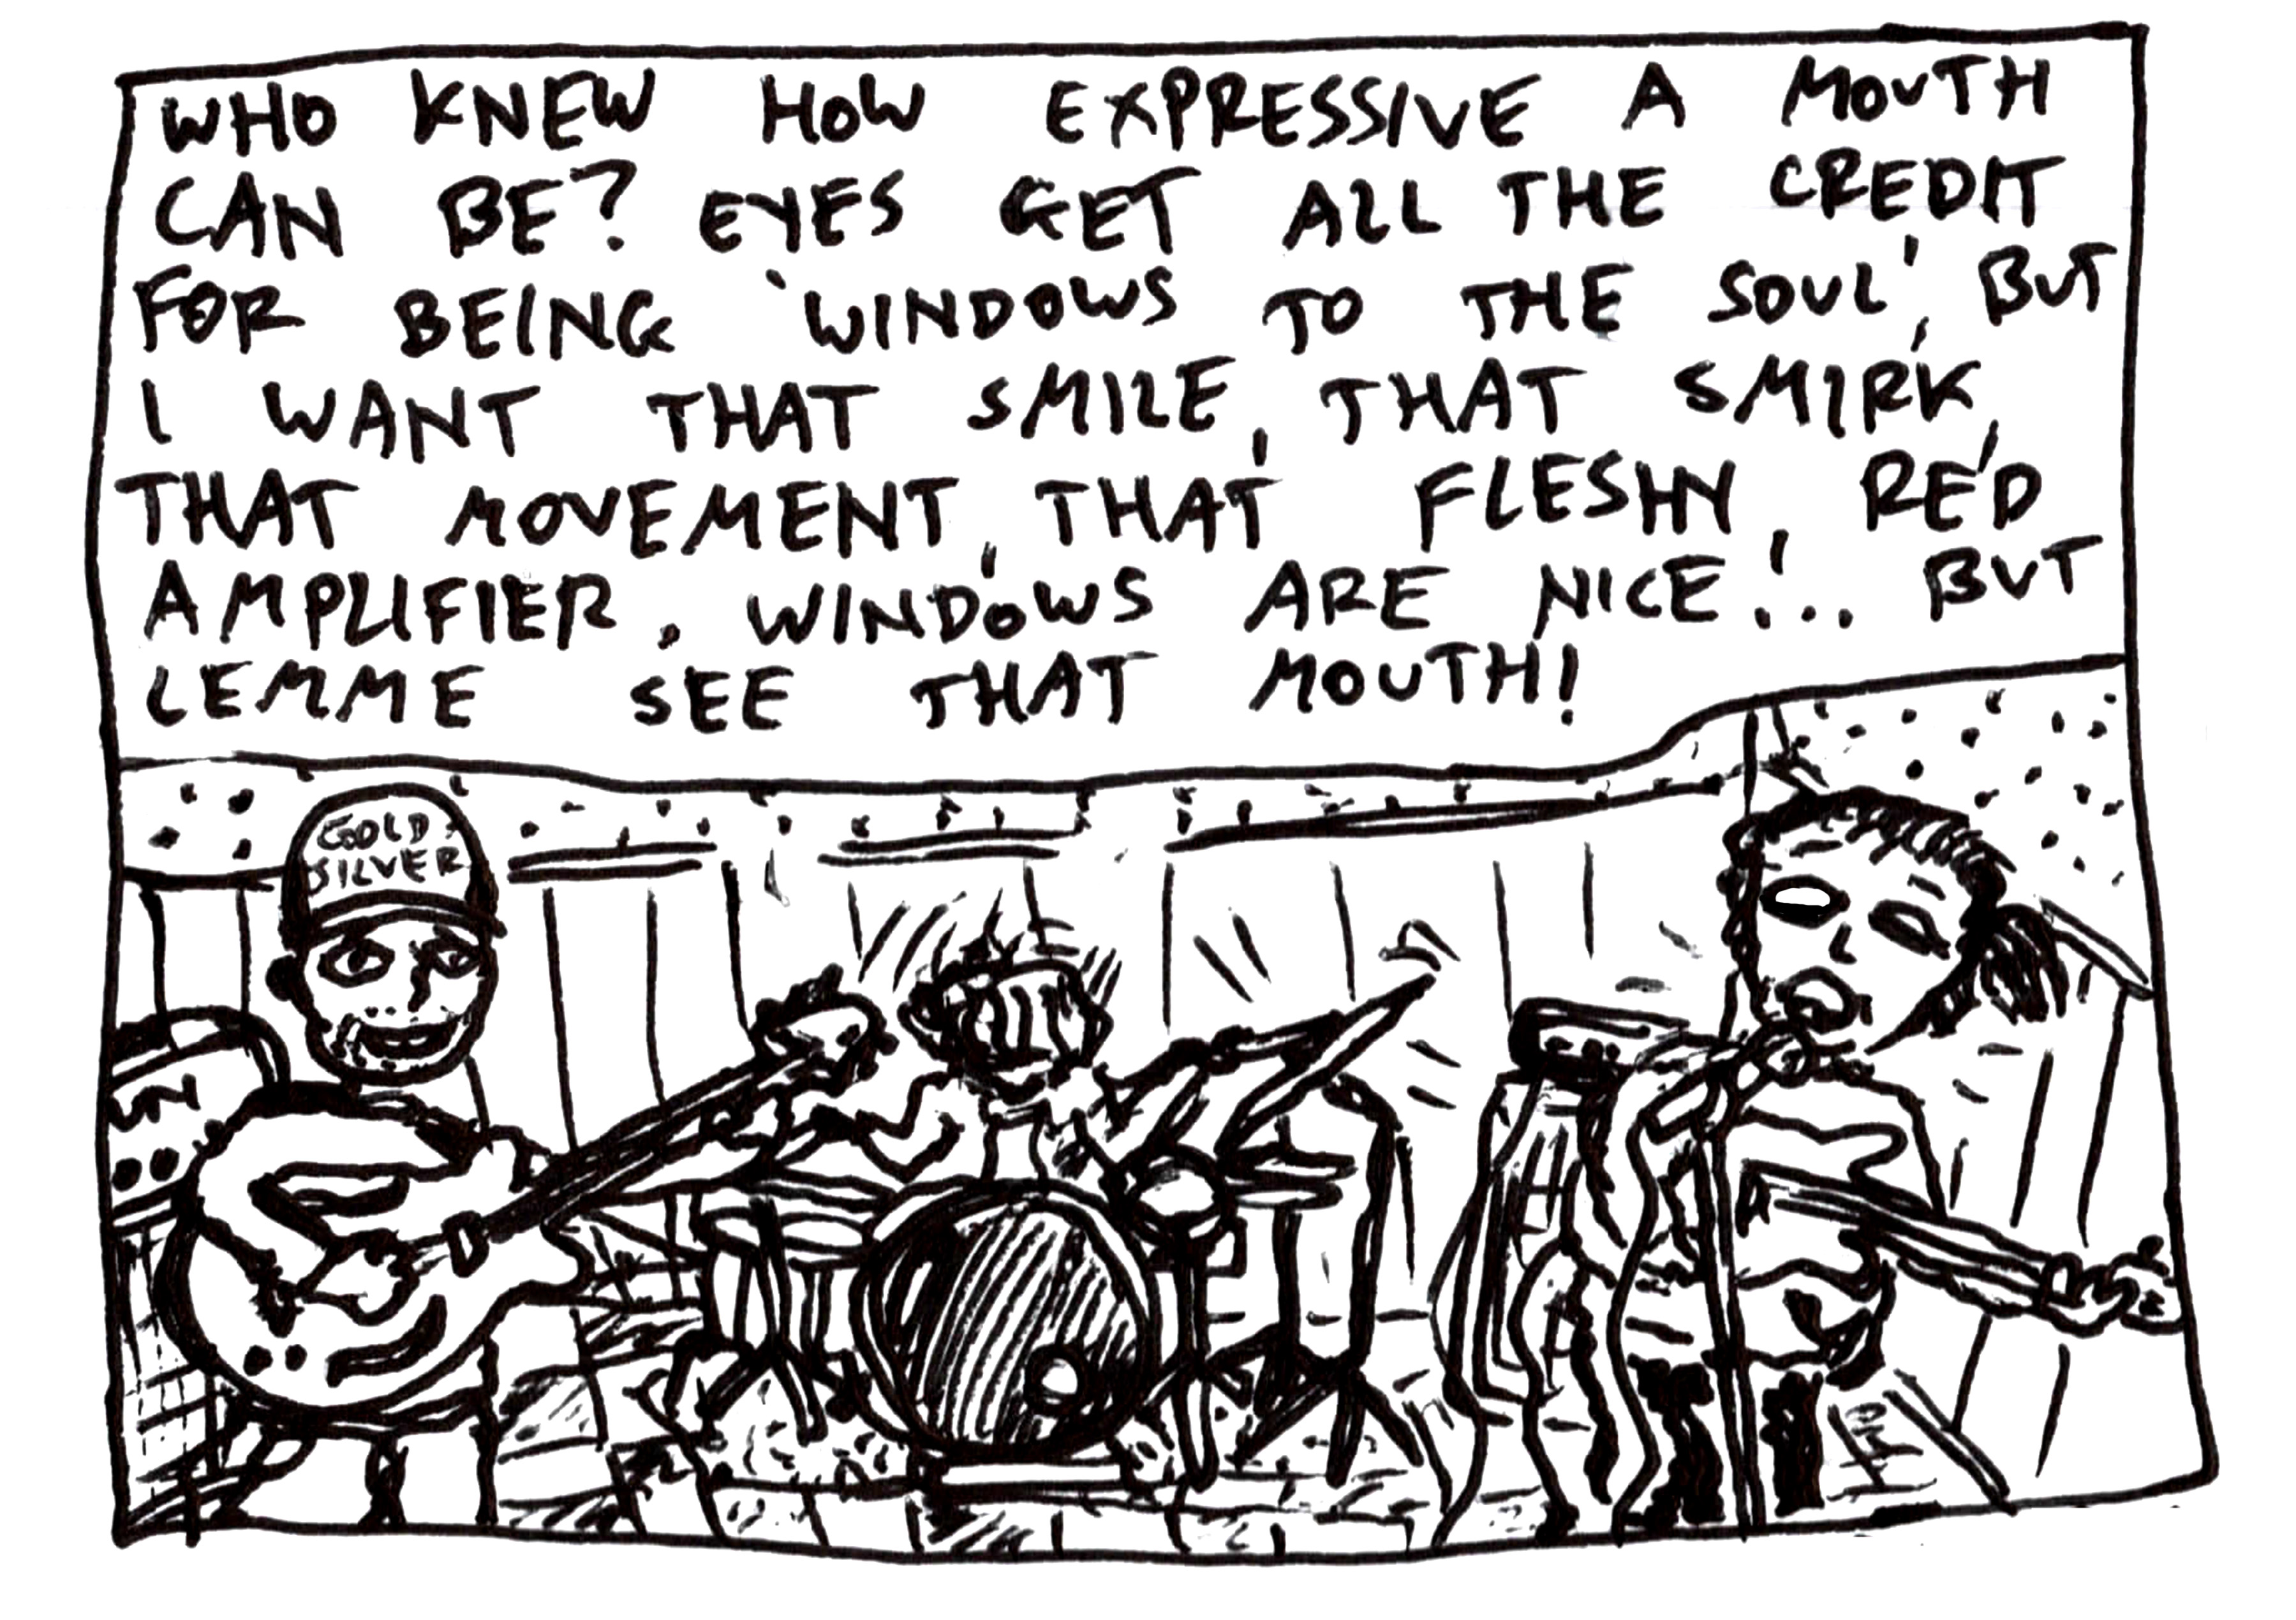 WHO KNEW HOW EXPRESSIVE A MOUTH
CAN BE? EYES GET ALL THE CREDIT
FOR BEING 'WINDOWS TO THE SOUL', BUT
I WANT THAT SMILE, THAT SMIRK,
THAT MOVEMENT, THAT FLESHY, RED
AMPLIFIER. WINDOWS ARE NICE!... BUT
LEMME SEE THAT MOUTH!
GOLD
SILVER